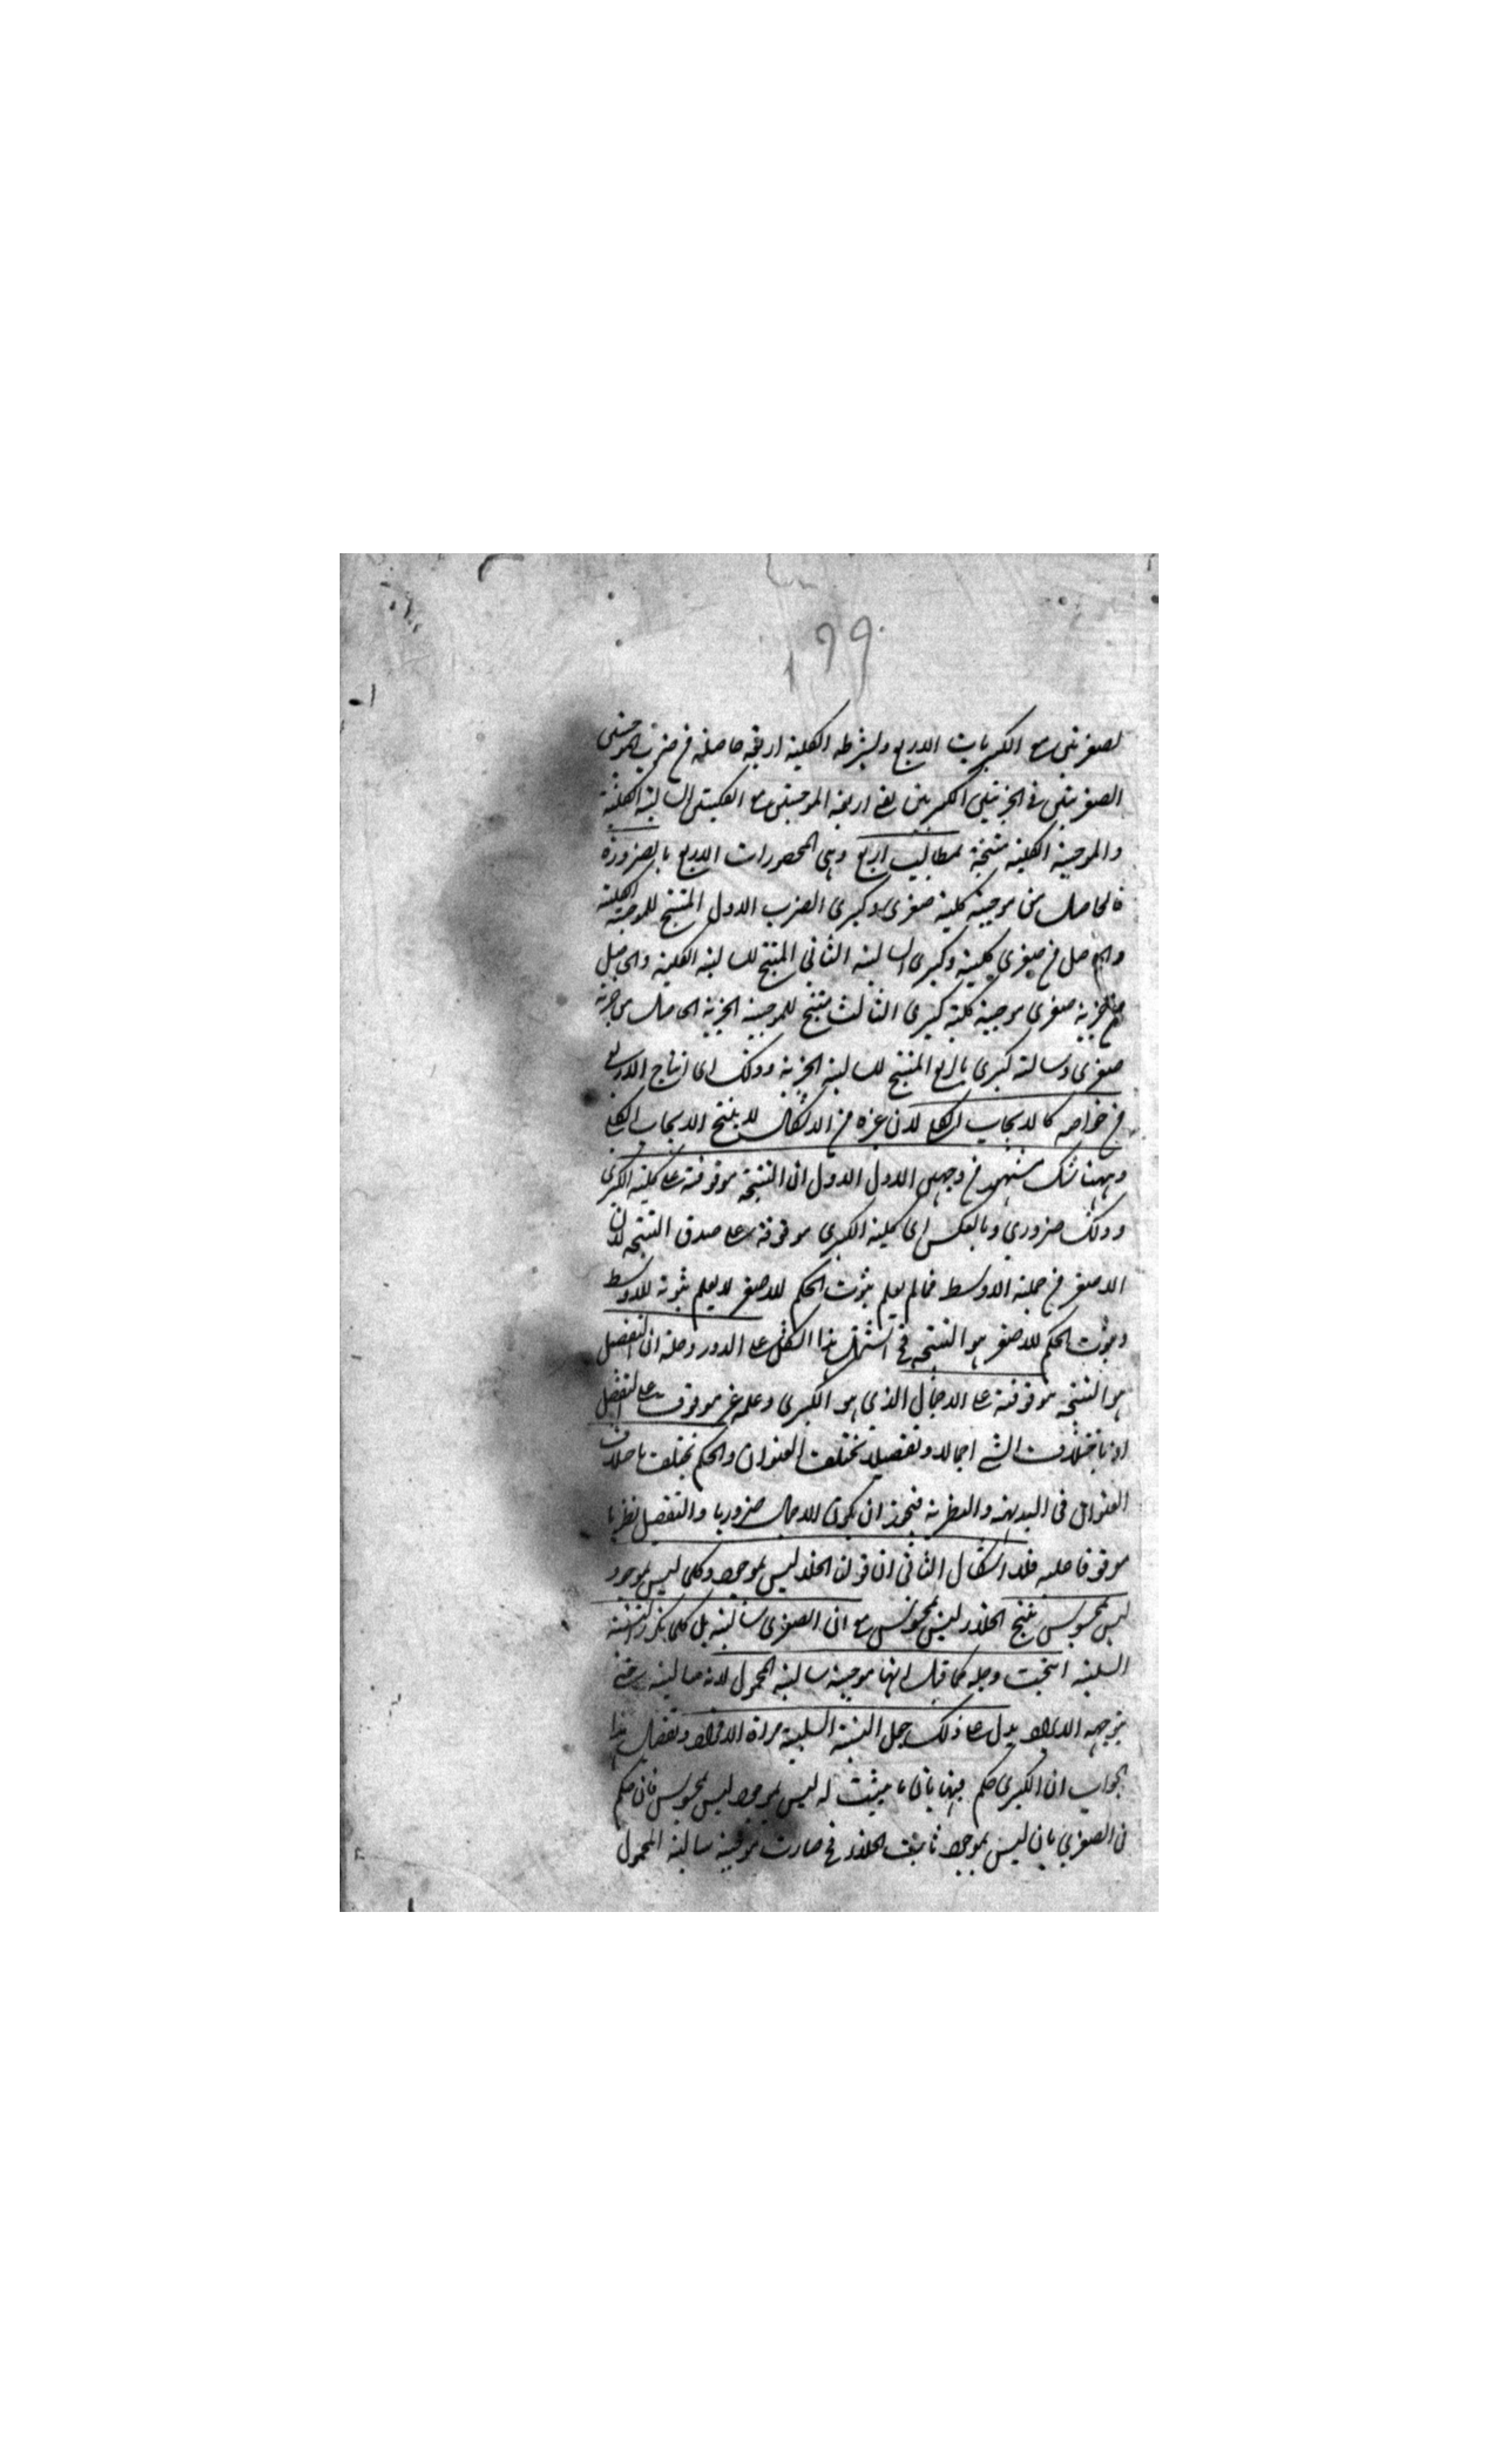 ١٩٩
لصغريتين مع الكبريات الاربع وبشرطه الكلية اربعة حاصلة من ضرب الموجبتين
الصغريتين في الجزئيتين الكبريين بقي اربعة الموجبتين مع الكليتين السالبة الكلية
والموجبة الكلية منتجة لمطالب اربع وهي المحصورات الاربع بالضرورة
فالحاصل من موجبة كلية صغرى وكبرى الضرب الاول المنتج للموجبة الكلية
والحاصل من صغرى كلية وكبرى السالبة الثاني المنتج للسالبة الكلية والحاصل
من جزية صغرى موجبة كلية كبرى الثالث منتج للموجبة الجزية الحاصل من جزية
صغرى وسالبة كبرى رابع المنتج للسالبة الجزية وذلك اى انتاج الاربع
من خواصه كالايجاب الكلي لان غيره من الاشكال لا ينتج الايجاب الكلي
وههنا شك مشهور من وجهين الاول الاول ان النتيجة موقوفة على كلية الكبرى
وذلك ضروري وبالعكس اى كلية الكبرى موقوفة على صدق النتيجة لان
الاصغر من جملة الاوسط فما لم يعلم ثبوت الحكم للاصغر لا يعلم ثبوته للاوسط
وثبوت الحكم للاصغر هو النتيجة فح اشتمل هذا الشكل على الدور وحله ان التفصيل
هو النتيجة موقوفة على الاجمال الذي هو الكبرى وعلمه غير موقوف على التفصيل
اذ باختلاف الشي اجمالا وتفصيلا يختلف العنوان والحكم يختلف باختلاف
العنوان في البديهية والنظرية فيجوز ان يكون الاجمال ضروريا والتفصيل نظريا
موقوفا عليه فلا اشكال الثاني ان قولنا الخلاء ليس بموجود وكلما ليس بموجود
ليس بمحسوس ينتج الخلاء ليس بمحسوس مع ان الصغرى سالبة بل كلما تكرر النسبة
السلبية انتجت وحله كما قيل انها موجبة سالبة المحمول لانه سالبة حتى
يتوجه الايراد يدل على ذلك جعل النسبة السلبية مراة الافراد وتفصيل هذا
الجواب ان الكبرى حكم فيها بان ما يثبت له ليس بموجود ليس بمحسوس فان حكم
في الصغرى بان ليس بموجود ثابت للخلاء فح صارت موجبة سالبة المحمول